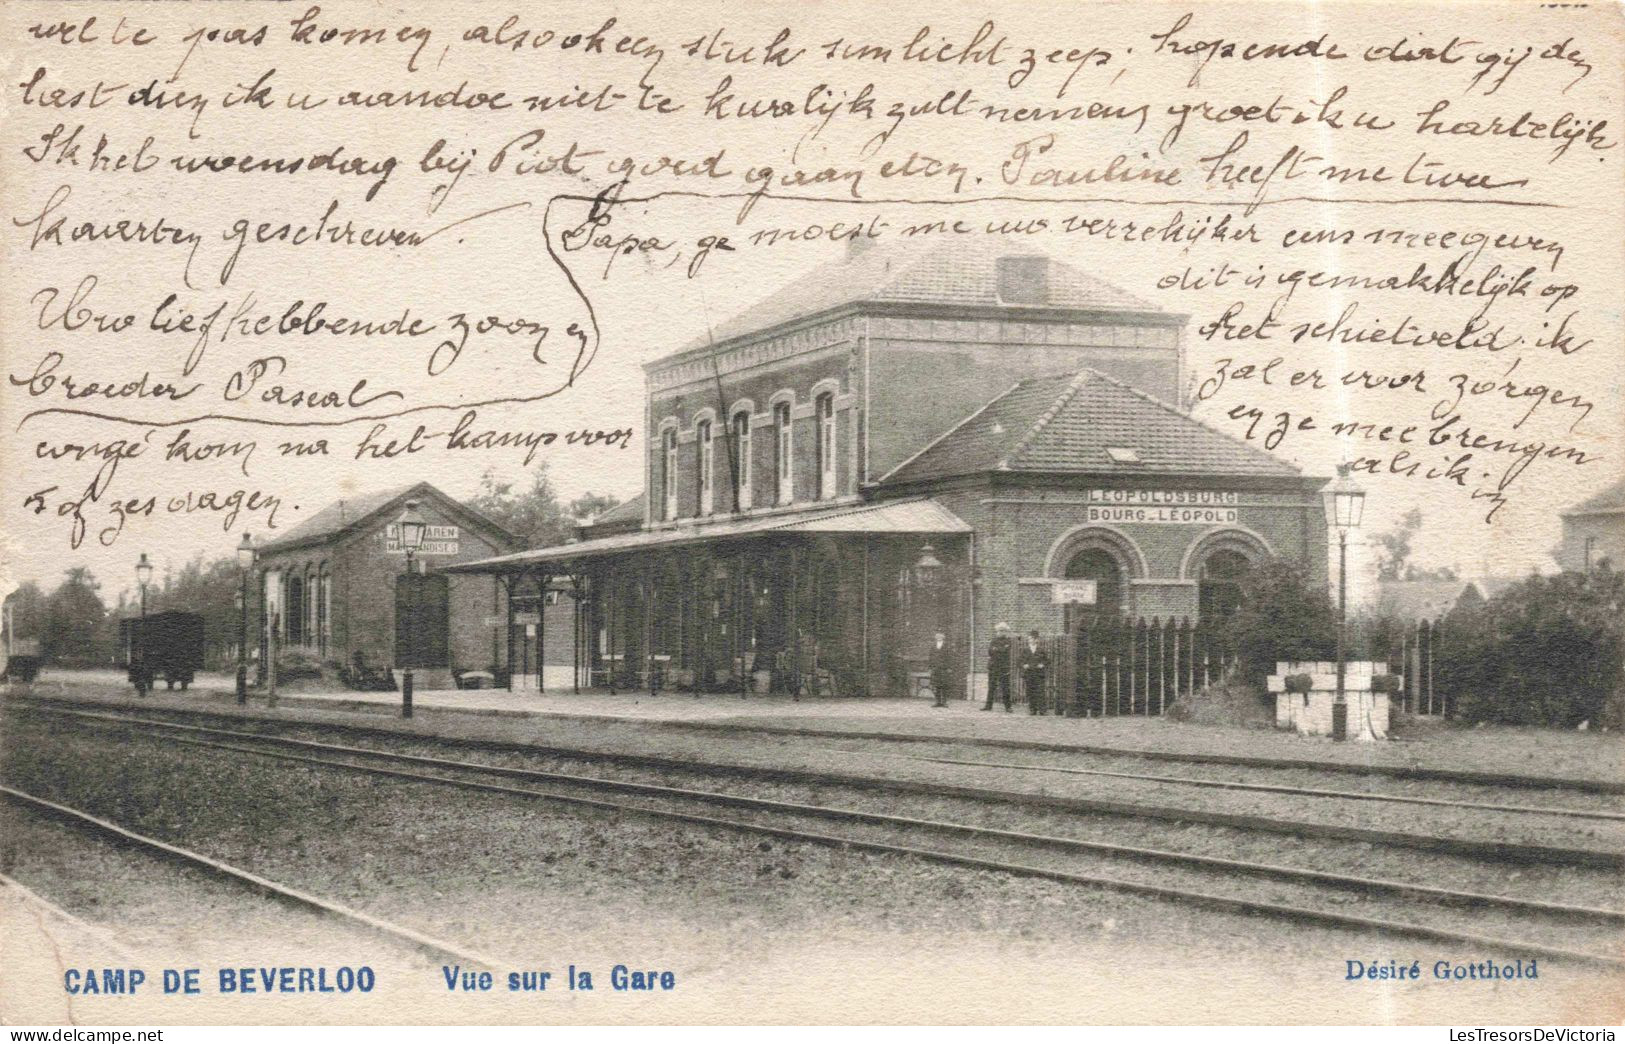 wel te pas komen, alsook een stuk sunlicht zeep; hopende dat gij den
last dien ik u aandoe niet te kwalijk zult nemen, groet ik u hartelijk.
Ik heb woensdag bij Piot goed gaan eten. Pauline heeft me twee
kaarten geschreven.
Uw liefhebbende zoon en
broeder Pascal
Papa, ge moest me uw verrekijker eens meegeven
dit is gemakkelijk op
het schietveld; ik
zal er voor zorgen
en ze mee brengen
als ik in
congé kom na het kamp voor
5 of zes dagen.
LEOPOLDSBURG
BOURG-LÉOPOLD
CAMP DE BEVERLOO Vue sur la Gare
Désiré Gotthold
LesTresorsDeVictoria